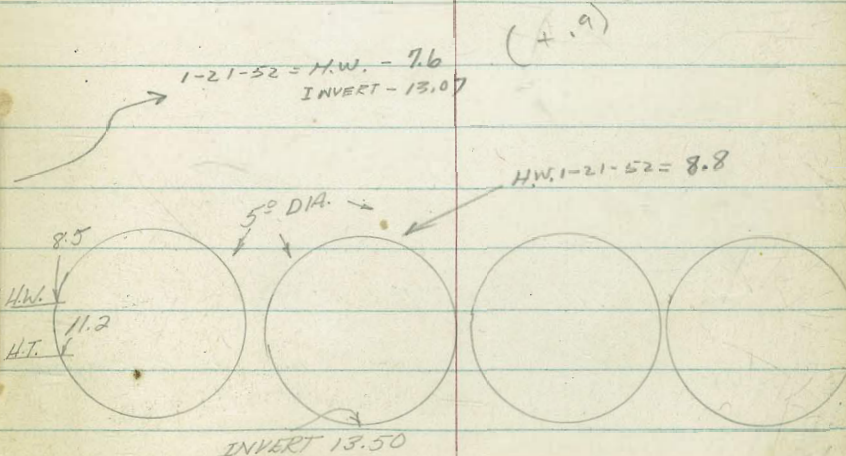 (+.9)
1-21-52 = H.W. - 7.6
INVERT - 13.07
H.W. 1-21-52 = 8.8
5º DIA.
8.5
H.W.
11.2
H.T.
INVERT 13.50